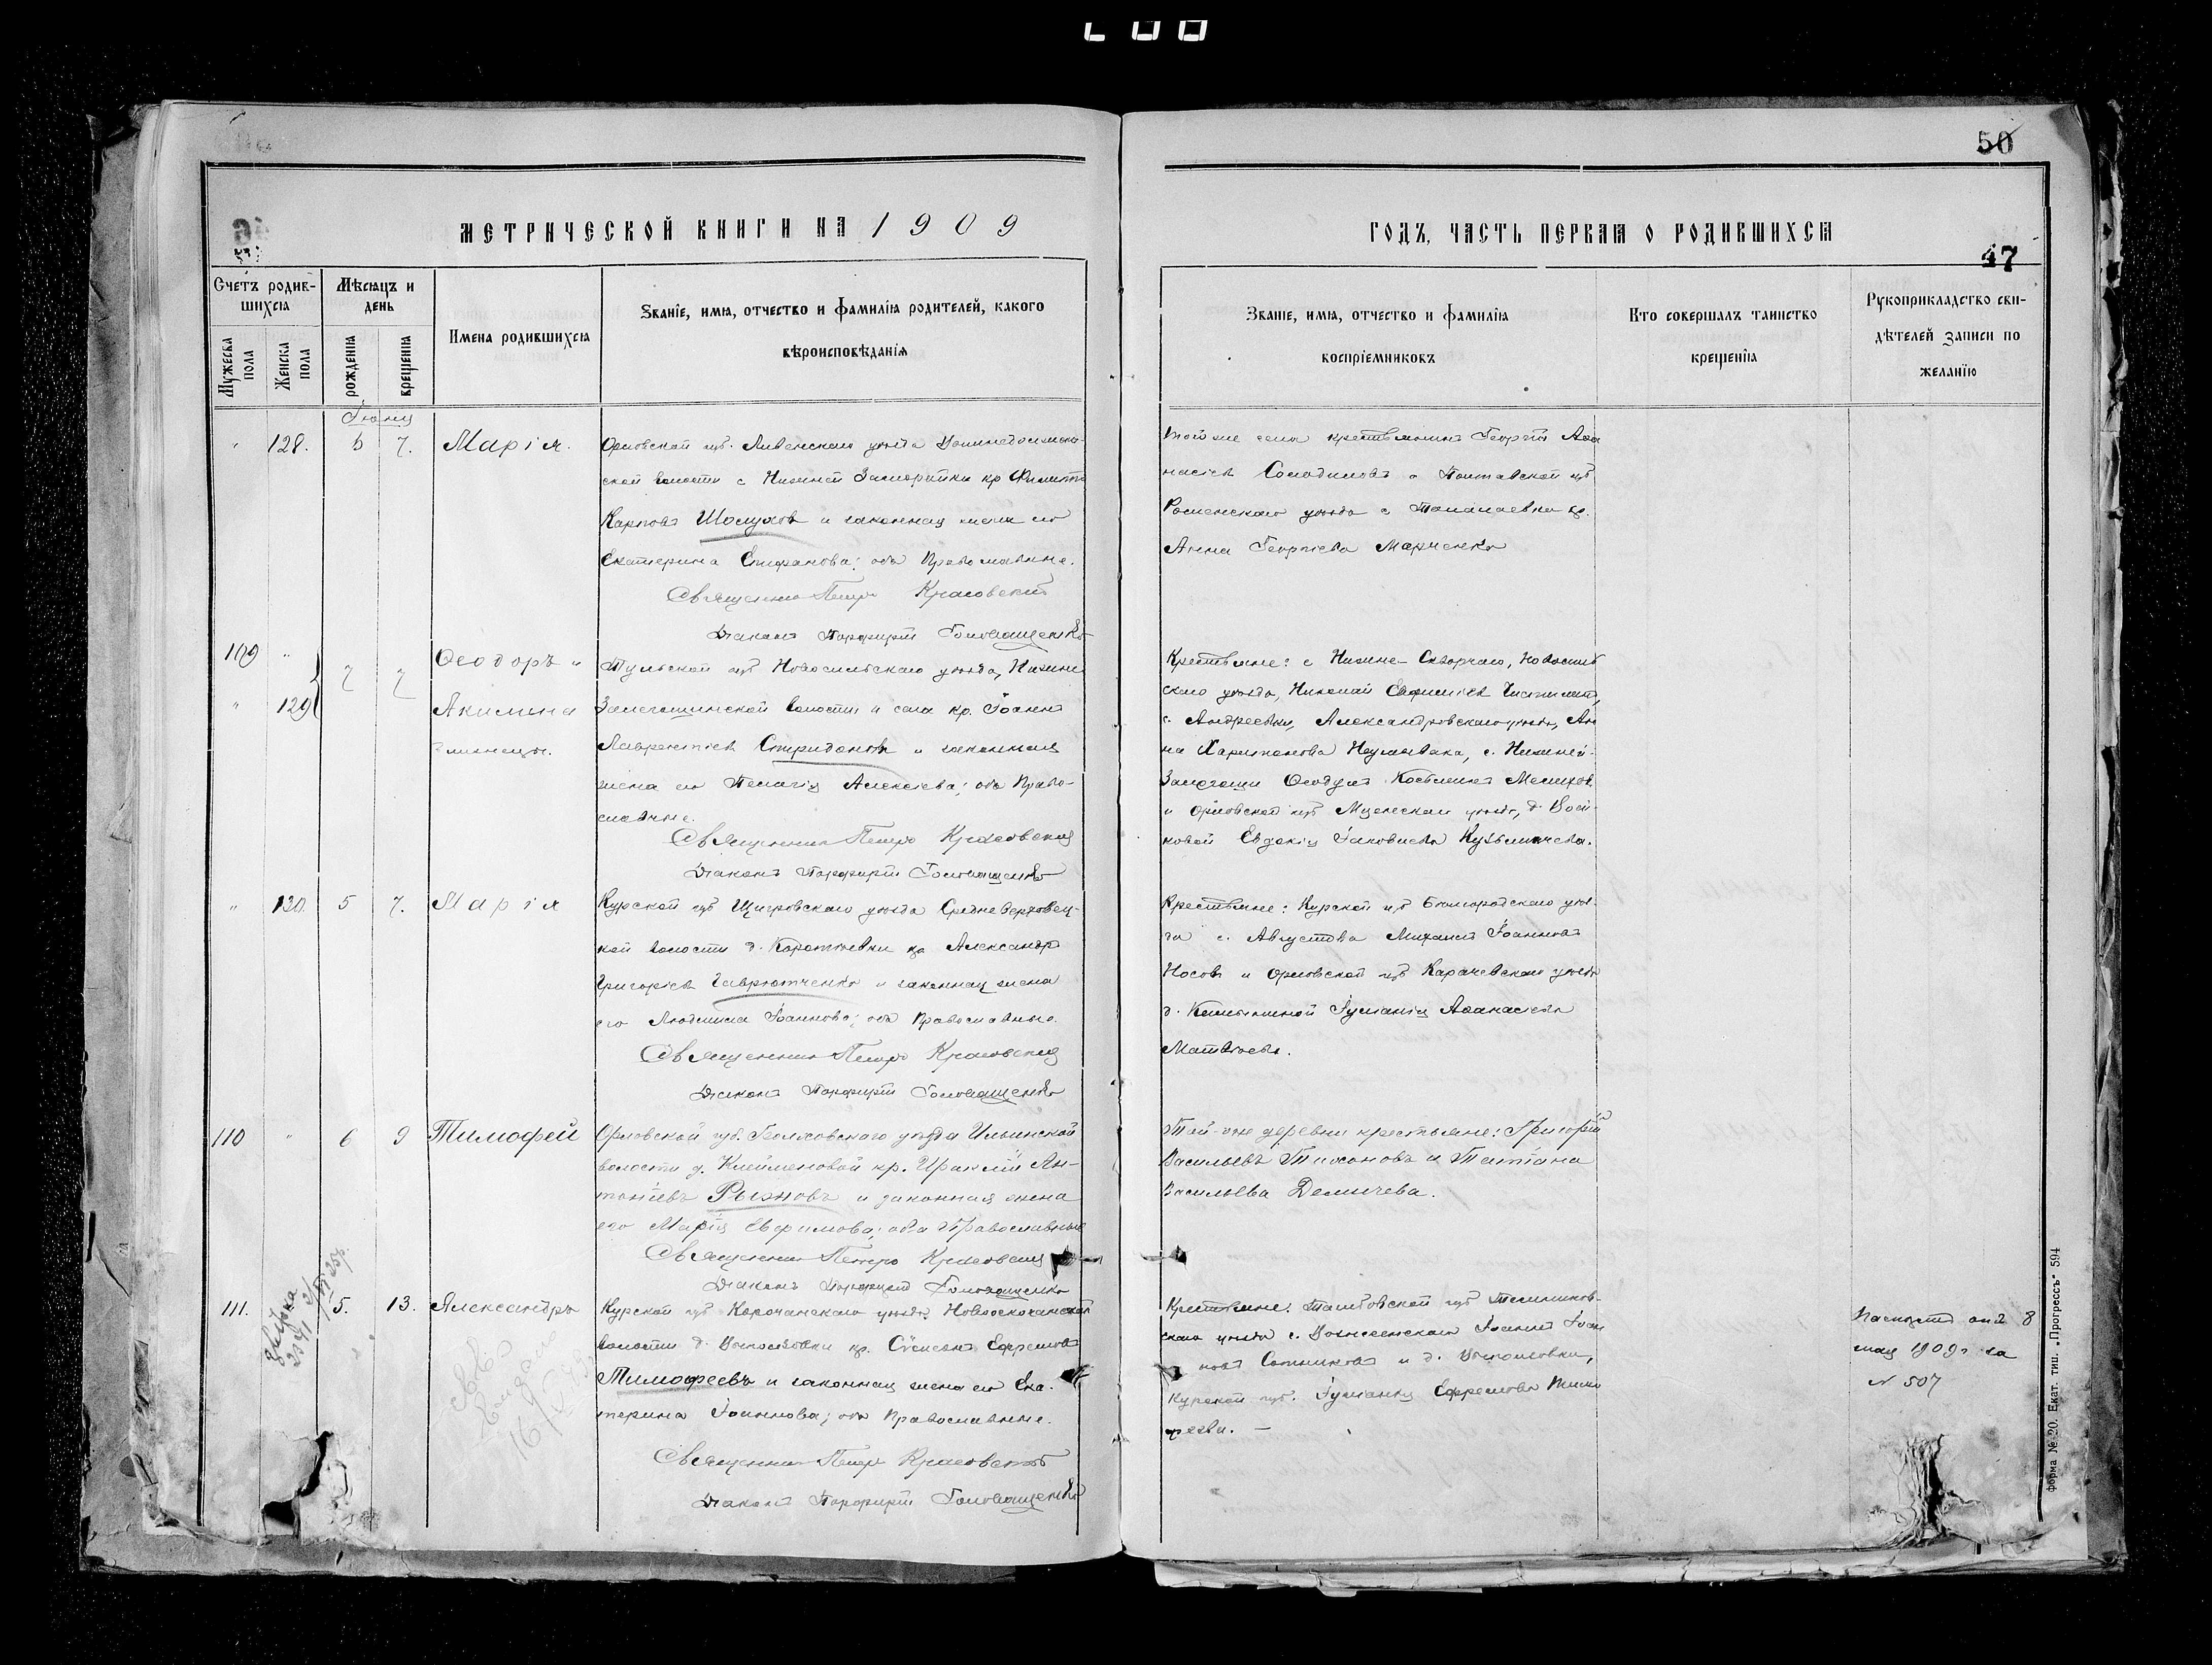 50
МЕТРИЧЕСКОЙ КНИГИ НА 1909
ГОДЪ, ЧАСТЬ ПЕРВАЯ О РОДИВШИХСЯ
47
Счетъ родившихся
Мужеска пола
Женска пола
Мѣсяцъ и день
рожденія
крещенія
Имена родившихся
Званіе, имя, отчество и фамилія родителей, какого
вѣроисповѣданія
Званіе, имя, отчество и фамилія
воспріемниковъ
Кто совершалъ таинство
крещенія
Рукоприкладство сви-
дѣтелей записи по
желанію
128. 5 7. Марія.
Орловской губ. Ливенскаго уѣзда
ской волости с Нижней кр Филиппъ
Карповъ Шолуховъ и законная жена его
Екатерина Епифанова; оба Православные.
Священникъ Петръ Красовскій
Діаконъ Порфирій Головащенко
той же села крестьянинъ Георгій Аѳа
насіевъ Солодиловъ и Полтавской губ
Роменскаго уѣзда с кр.
Анна Георгіева Марченко
109 " 7 7 Ѳеодоръ и
" 129 Акилина
близнецы.
Тульской губ Новосильскаго уѣзда, Нижне
Залегощинской волости и села кр. Іоаннъ
Лаврентіевъ Спиридоновъ и законная
жена его Пелагія Алексіева; оба Право-
славные.
Священникъ Петръ Красовскій
Діаконъ Порфирій Головащенко
Крестьяне: с Нижне-Скворчаго, Новосиль
скаго уѣзда, Николай Евфиміевъ
с. Андреевки, Александровскаго уѣзда, Ан
на Харитонова с. Нижней-
Залегощи Ѳеодулъ Косьминъ Мелиховъ
и Орловской губ Мценскаго уѣзда, д. Вой-
новой Евдокія Іаковлева Кузьмичева.
" 130. 5 7. Марія
Курской губ Щигровскаго уѣзда
кой волости д. кр Александръ
Григоріевъ Гаврютченко и законная жена
его Людмила Іоаннова; оба Православные.
Священникъ Петръ Красовскій
Діаконъ Порфирій Головащенко
Крестьяне: Курской губ Бѣлгородскаго уѣз-
да с. Августова Михаилъ Іоанновъ
Носовъ и Орловской губ Карачевскаго уѣзда
д. Іуліанія Аѳанасіева
Матвѣева.
110 " 6 9 Тимофей
Орловской губ. Болховскаго уѣзда Ильинской
волости д. Клейменовой кр. Ираклій Ан-
тоніевъ Рыжновъ и законная жена
его Марія Евфимова; оба Православные
Священникъ Петръ Красовскій
Діаконъ Порфирій Головащенко
Той-же деревни крестьяне: Григорій
Васильевъ Тихоновъ и Татіана
Васильева Демичева.
111. 5. 13. Александръ
Курской губ Корочанскаго уѣзда
волости д. кр. Сѵмеонъ Ефремовъ
Тимофеевъ и законная жена его Ека-
терина Іоаннова; оба Православные.
Священникъ Петръ Красовскій
Діаконъ Порфирій Головащенко
Крестьяне: Тамбовской губ Темников-
скаго уѣзда с. Вознесенскаго Іоаннъ Іоан
новъ Сотниковъ и д.
Курской губ. Іуліанія Ефремова Тимо
феева. —
Паспортъ отъ 28
мая 1909 г за
№ 507
Форма № 20. Екат. тип. „Прогрессъ" 594